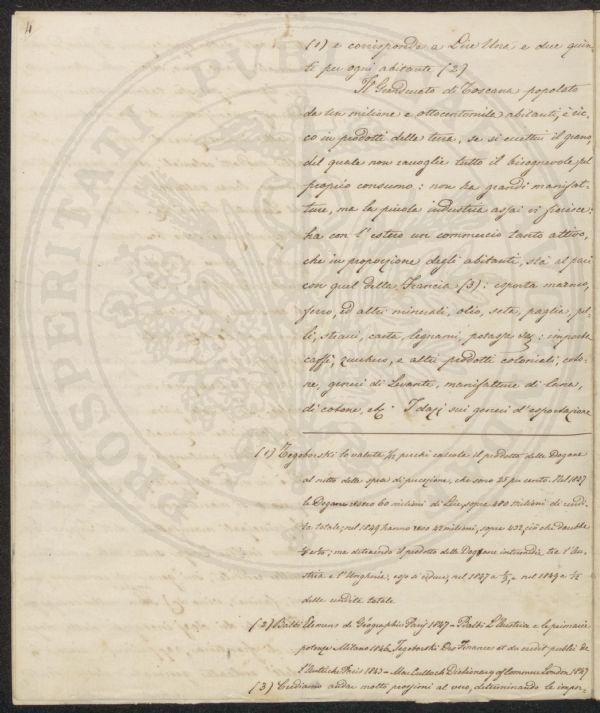 4
(1) e corrisponde a Lire Una e due quin-
ti per ogni abitante (2)
Il Granducato di Toscana popolato
da un milione e ottocentomila abitanti, è ric-
co in prodotti della terra, se si eccettui il grano,
del quale non raccoglie tutto il bisognevole pel
proprio consumo: non ha grandi manifat-
ture, ma la piccola industria assai vi fiorisce:
ha con l'estero un commercio tanto attivo,
che in proporzione degli abitanti, stà al pari
con quel della Francia (3): esporta marmo,
ferro, ed altri minerali, olio, seta, paglia, pel-
li, stracci, carta, legnami, potassa &: importa
caffè, zucchero, e altri prodotti coloniali, coto-
ne, generi di Levante, manifatture di lana,
di cotone, & I dazj sui generi d'esportazione
(1) Tegoborski lo valuta perchè calcola il prodotto delle Dogane
al netto delle spese di percezione, che sono 25 per cento. Nel 1847
le Dogane resero 60 milioni di Lire, sopra 480 milioni di rendi-
ta totale; nel 1849 hanno reso 42 milioni, sopra 432, ciò che darebbe
ma detraendo il prodotto delle Dogane intermedie tra l'Au-
stria e l'Ungheria, esso si riduce, nel 1847 a nel 1849 a
delle rendite totale
(2) Balbi Élémens de Géographie Parigi 1847 - Balbi L'Austria e le primarie
potenze Milano 1846, Tegoborski Des Finances et du crédit public de
l'Autriche Paris 1843 - Mac Culloch Dictionary of Commerce London 1847
(3) Crediamo andar molto prossimi al vero, determinando le impor-
PROSPERITATI PUBLICAE